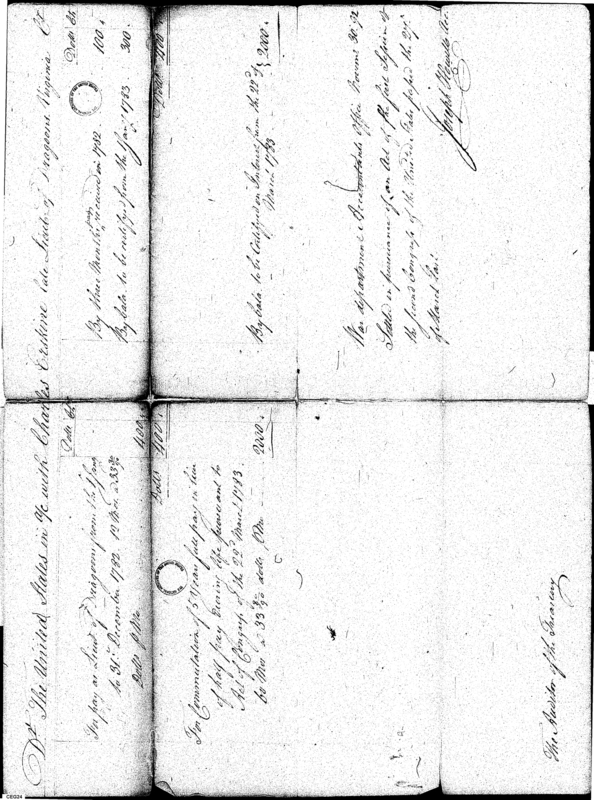 Dr The United States in a/c with Charles Erskine late Lieut. of Dragoons Virginia Cr
Dolls 90
For pay as Lieut. of Dragoons from the 1st Jany
to 31st December 1782. 12 Mos. a 33 30/90
Dolls ₱ Mo. 400
Dolls 400
For Commutation of 5 Years full pay in lieu
of half pay during life pursuant to
Act of Congress of the 22d March 1783
60 Mos. a 33 30/90 dolls ₱ Mo 2000.
The Auditor of the Treasury
Dolls 90
By three Months pay received in 1782 100
By bala. to be certified from the 1 Jany 1783 300
Dolls 400
By bala. to be Certified on Interest from the 22d of
March 1783 2000.
War department Accountants Office
Settled in pursuance of an Act of the first Session of
the second Congress of the United States passed the 27th
of March last.
Joseph Howell
CEG24